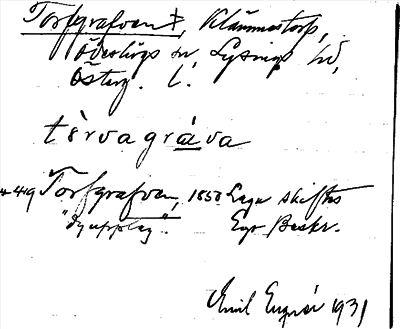 Torfgrafven, Klämmestorp,
Ödeshögs sn, Lysings hd,
Österg. l.
tèrvagrá͟va
449 Torfgrafven, 1850 Laga skiftes
"dyupptag". Egobeskr.
Emil 1931